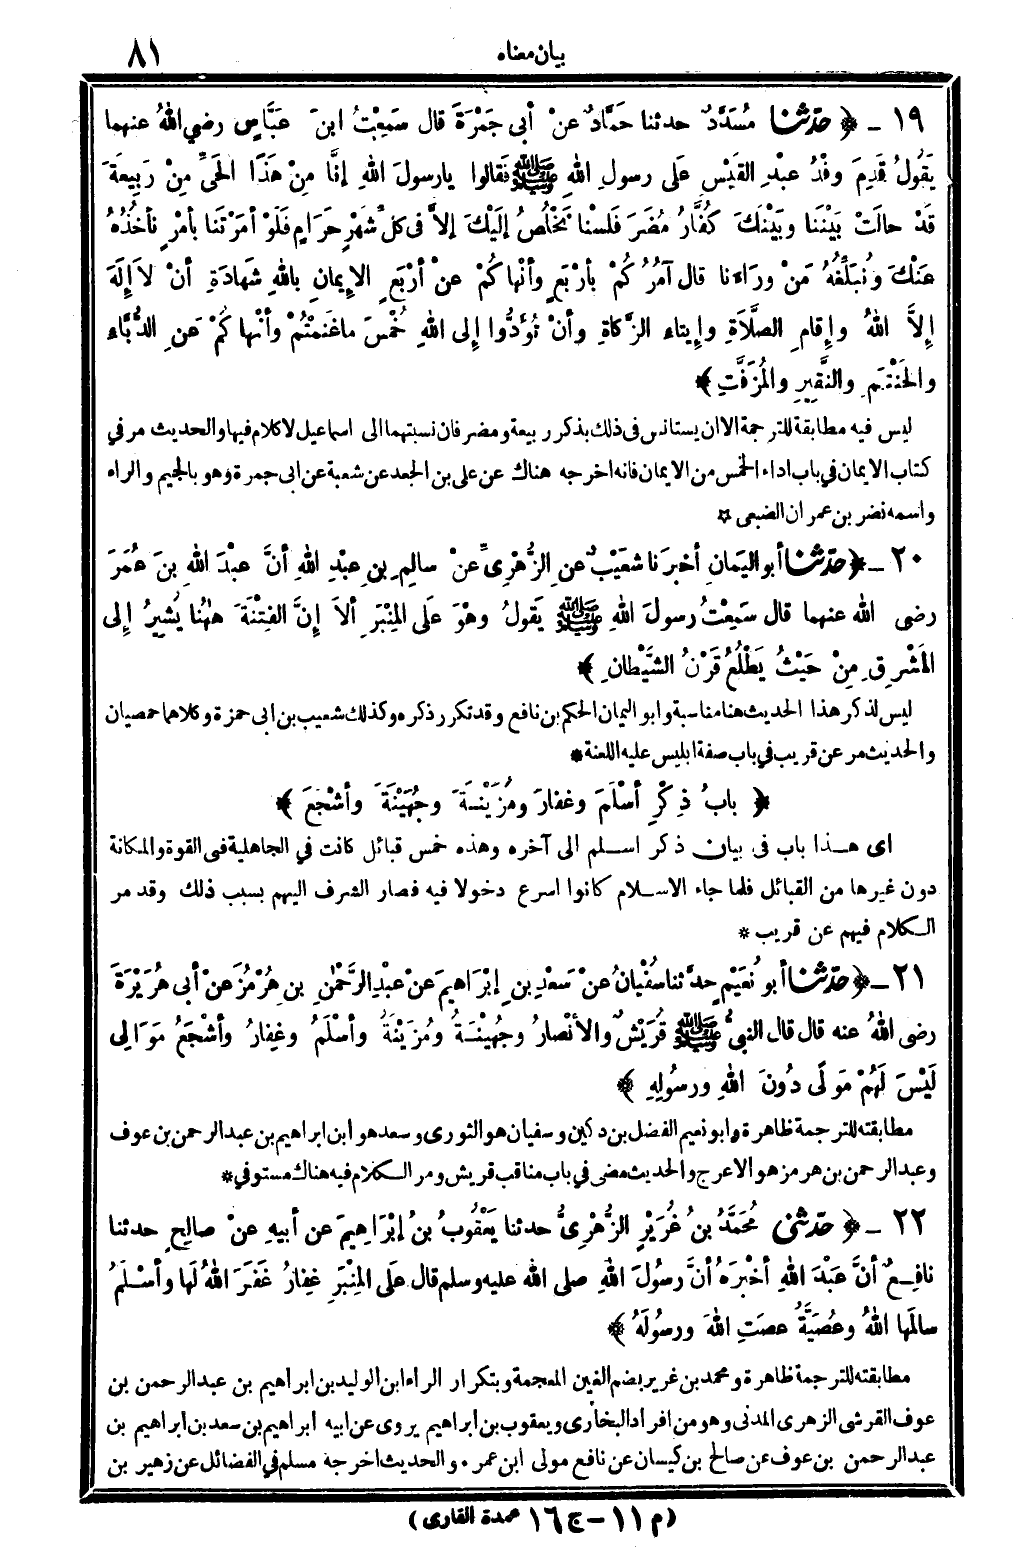 بيان معناه ٨١
١٩ ــ ﴿ حَدَّثَنا مُسَدَّدٌ حدثنا حَمَّادٌ عنْ أبى جَمْرَةَ قال سَمِعْتُ ابنَ عَبَّاسٍ رضي اللهُ عنهما
يَقُولُ قَدِمَ وَفْدُ عبْدِ القَيْسِ عَلى رسولِ اللهِ ﷺ فَقالوا يارسولَ اللهِ إنَّا مِنْ هَذَا الحَيِّ مِنْ رَبِيعةَ
قَدْ حالَتْ بَيْنَنا وبَيْنَكَ كُفَّارُ مُضَرَ فَلَسْنا نَخْلُصُ إلَيْكَ إلاَّ فى كلِّ شَهْرٍ حَرَامٍ فَلَوْ أمَرْتَنا بأمْرٍ نأخُذُهُ
عنْكَ ونُبَلِّغُهُ مَنْ وراءَنا قال آمُرُكُمْ بأرْبَعٍ وأنْهاكُمْ عنْ أرْبَعٍ الإيمانِ باللهِ شَهادَةِ أنْ لاَ إلَهَ
إلاَّ اللهُ وإقامِ الصَّلاَةِ وإيتاء الزَّكاةِ وأنْ تُؤَدُّوا إلى اللهِ خُمْسَ ماغَنِمْتُمْ وأنْهاكُمْ عَنِ الدُّبَّاء
والحَنْتَمِ والنَّقِيرِ والمُزَفَّتِ ﴾
ليس فيه مطابقة للترجمة الا ان يستانس فى ذلك بذكر ربيعة ومضر فان نسبتهما الى اسماعيل لا كلام فيها والحديث مر في
كتاب الايمان في باب اداء الخمس من الايمان فانه اخرجه هناك عن على بن الجعد عن شعبة عن ابى جمرة وهو بالجيم والراء
واسمه نضر بن عمران الضبعى ☆
٢٠ ــ ﴿ حَدَّثَنا أبو اليَمانِ أخبرَنا شعَيْبٌ عنِ الزُّهْرِىِّ عنْ سالِمِ بنِ عبْدِ اللهِ أنَّ عبْدَ اللهِ بنَ عُمَرَ
رضى اللهُ عنهما قال سَمِعْتُ رسولَ اللهِ ﷺ يَقولُ وهْوَ عَلَى المِنْبَرِ ألاَ إنَّ الفِتْنَةَ هٰهُنا يُشِيرُ إلى
المَشْرِقِ مِنْ حَيْثُ يَطْلُعُ قَرْنُ الشَّيْطانِ ﴾
ليس لذكر هذا الحديث هنا مناسبة وابو اليمان الحكم بن نافع وقد تكرر ذكره وكذلك شعيب بن ابى حمزة وكلاهما حمصيان
والحديث مر عن قريب في باب صفة ابليس عليه اللعنة *
﴿ بابُ ذِكْرِ أسْلَمَ وغفارَ ومُزَيْنَةَ وجُهَيْنَةَ وأشْجَعَ ﴾
اى هــذا باب فى بيان ذكر اســلم الى آخره وهذه خمس قبائل كانت في الجاهلية فى القوة والمكانة
دون غيرها من القبائل فلما جاء الاســلام كانوا اسرع دخولا فيه فصار الشرف اليهم بسبب ذلك وقد مر
الــكلام فيهم عن قريب *
٢١ ــ ﴿ حَدَّثَنا أبو نُعَيْمٍ حدَّثنا سُفْيانُ عنْ سَعْدِ بنِ إبْرَاهِيمَ عنْ عبْدِ الرَّحْمٰنِ بنِ هُرْمُزَ عنْ أبى هُرَيْرَةَ
رضى اللهُ عنه قال قال النبىُّ ﷺ قُرَيْشٌ والأنْصارُ وجُهيْنَةُ ومُزَيْنَةُ وأسْلَمُ وغِفارُ وأشْجَعُ مَوَالِى
لَيْسَ لَهُمْ مَوْلًى دُونَ اللهِ ورسُولِهِ ﴾
مطابقته للترجمة ظاهرة وابو نعيم الفضل بن دكين وسفيان هو الثورى وسعد هو ابن ابراهيم بن عبدالرحمن بن عوف
وعبدالرحمن بن هرمز هو الاعرج والحديث مضى في باب مناقب قريش ومر الــكلام فيه هناك مستوفي *
٢٢ ــ ﴿ حَدَّثَنى مُحَمَّدُ بنُ غُرَيْرٍ الزُّهْرِىُّ حدثنا يَعْقُوبُ بنُ إبْرَاهِيمَ عن أبيهِ عنْ صالِحٍ حدثنا
نافِعٌ أنَّ عَبْدَ اللهِ أخْبرَهُ أنَّ رسُولَ اللهِ صلى الله عليه وسلم قال عَلَى المِنْبَرِ غِفارُ غَفَرَ اللهُ لَها وأسْلَمُ
سالَمَها اللهُ وعُصَيَّةُ عصَتِ اللهَ ورسُولَهُ ﴾
مطابقته للترجمة ظاهرة ومحمد بن غرير بضم الغين المعجمة وبتكرار الراء ابن الوليد بن ابراهيم بن عبد الرحمن بن
عوف القرشى الزهرى المدنى وهو من افراد البخارى ويعقوب بن ابراهيم يروى عن ابيه ابراهيم بن سعد بن ابراهيم بن
عبدالرحمن بن عوف عن صالح بن كيسان عن نافع مولى ابن عمر * والحديث اخرجة مسلم في الفضائل عن زهير بن
(م ١١ – ج ١٦ عمدة القارى)